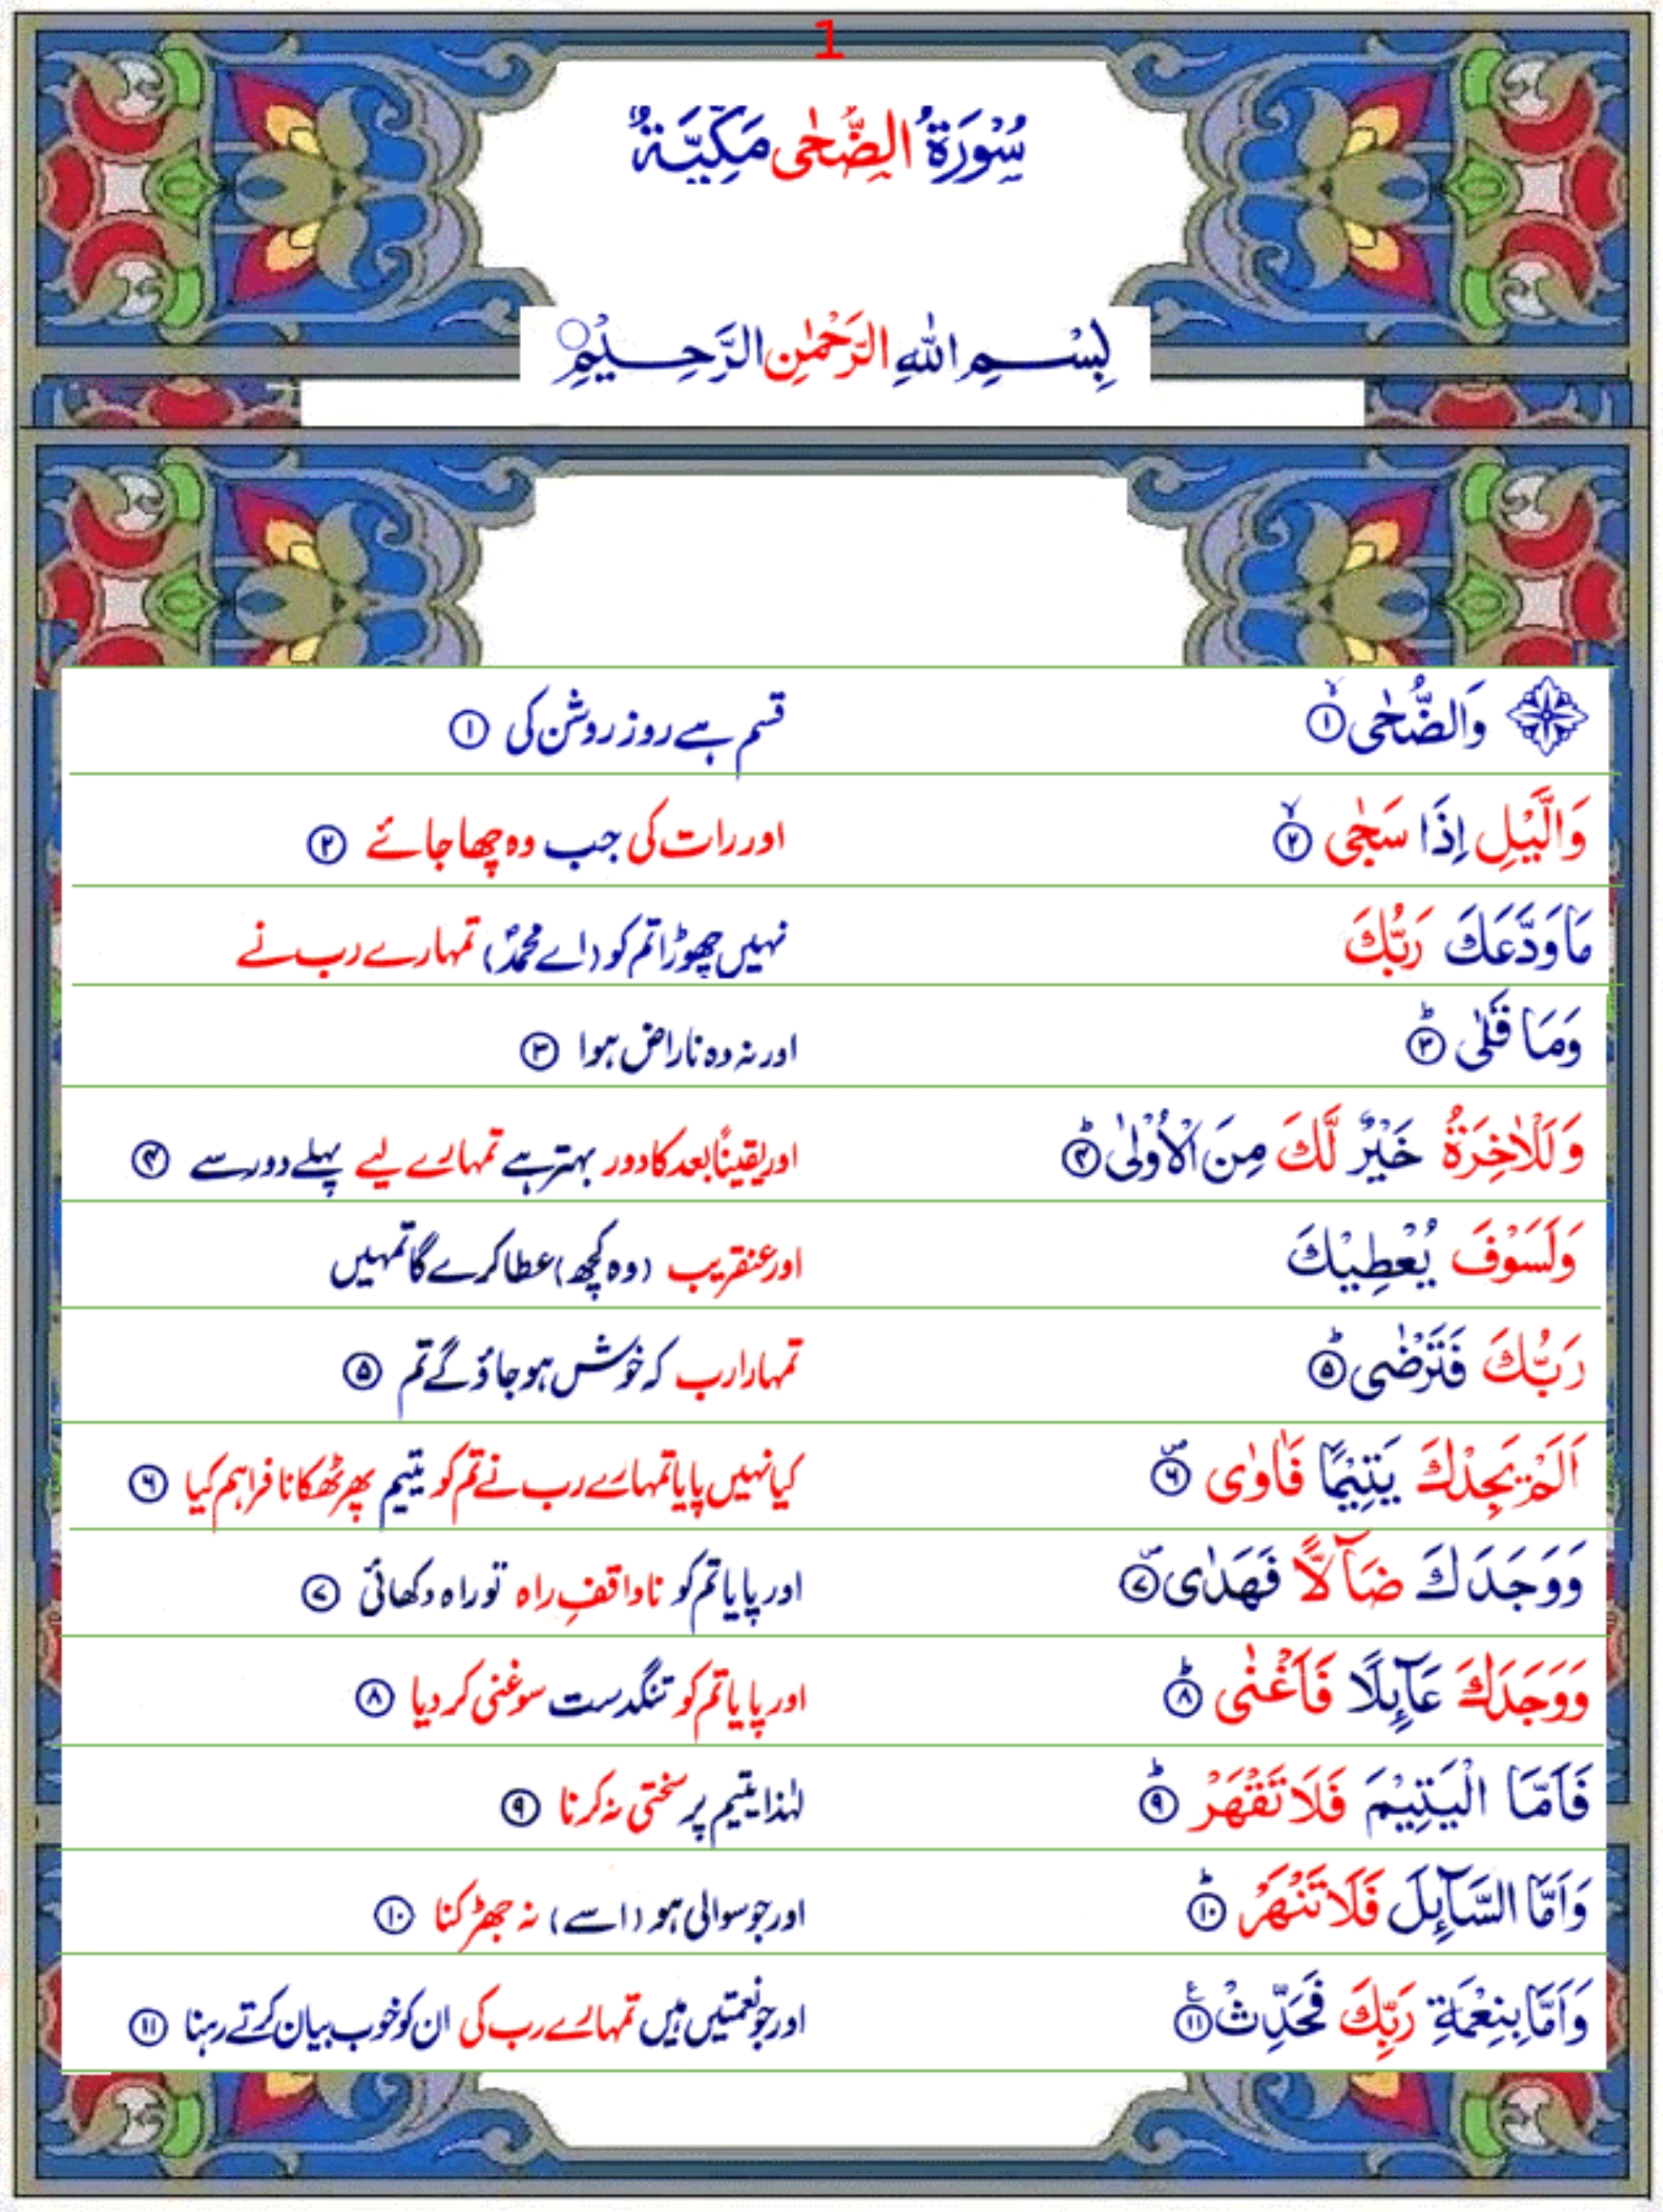 1
سُوْرَةُ الضُّحٰى مَكِّيَّةٌ
بِسْمِ اللّٰهِ الرَّحْمٰنِ الرَّحِيْمِ
وَالضُّحٰىۙ ۱ قسم ہے روز روشن کی ۱
وَالَّيْلِ اِذَا سَجٰىۙ ۲ اور رات کی جب وہ چھا جائے ۲
مَا وَدَّعَكَ رَبُّكَ نہیں چھوڑا تم کو (اے محمدؐ) تمہارے رب نے
وَمَا قَلٰىؕ ۳ اور نہ وہ ناراض ہوا ۳
وَلَلْاٰخِرَةُ خَيْرٌ لَّكَ مِنَ الْاُوْلٰىؕ ۴ اور یقیناً بعد کا دور بہتر ہے تمہارے لیے پہلے دور سے ۴
وَلَسَوْفَ يُعْطِيْكَ اور عنقریب (وہ کچھ) عطا کرے گا تمہیں
رَبُّكَ فَتَرْضٰىؕ ۵ تمہارا رب کہ خوش ہو جاؤ گے تم ۵
اَلَمْ يَجِدْكَ يَتِيْمًا فَاٰوٰى۪ ۶ کیا نہیں پایا تمہارے رب نے تم کو یتیم پھر ٹھکانا فراہم کیا ۶
وَوَجَدَكَ ضَآلًّا فَهَدٰى۪ ۷ اور پایا تم کو ناواقفِ راہ تو راہ دکھائی ۷
وَوَجَدَكَ عَآئِلًا فَاَغْنٰىؕ ۸ اور پایا تم کو تنگدست سو غنی کر دیا ۸
فَاَمَّا الْيَتِيْمَ فَلَا تَقْهَرْؕ ۹ لہٰذا یتیم پر سختی نہ کرنا ۹
وَاَمَّا السَّآئِلَ فَلَا تَنْهَرْؕ ۱۰ اور جو سوالی ہو (اسے) نہ جھڑکنا ۱۰
وَاَمَّا بِنِعْمَةِ رَبِّكَ فَحَدِّثْ ۱۱ اور جو نعمتیں ہیں تمہارے رب کی ان کو خوب بیان کرتے رہنا ۱۱